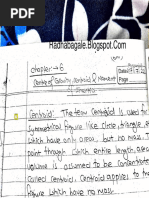 Radhabagale.Blogspot.Com
chapter → 6
Centre of Gravity, centroid & Moment
of Inertia
Date
Page
Centroid: The term Centroid is used
symmetrical figure like circle, triangle, e
which have only area, but no mass. T
point through which entire length, area
volume is assumed to be concentrate
called centroid. Centroid applies to
figure which have no mass.